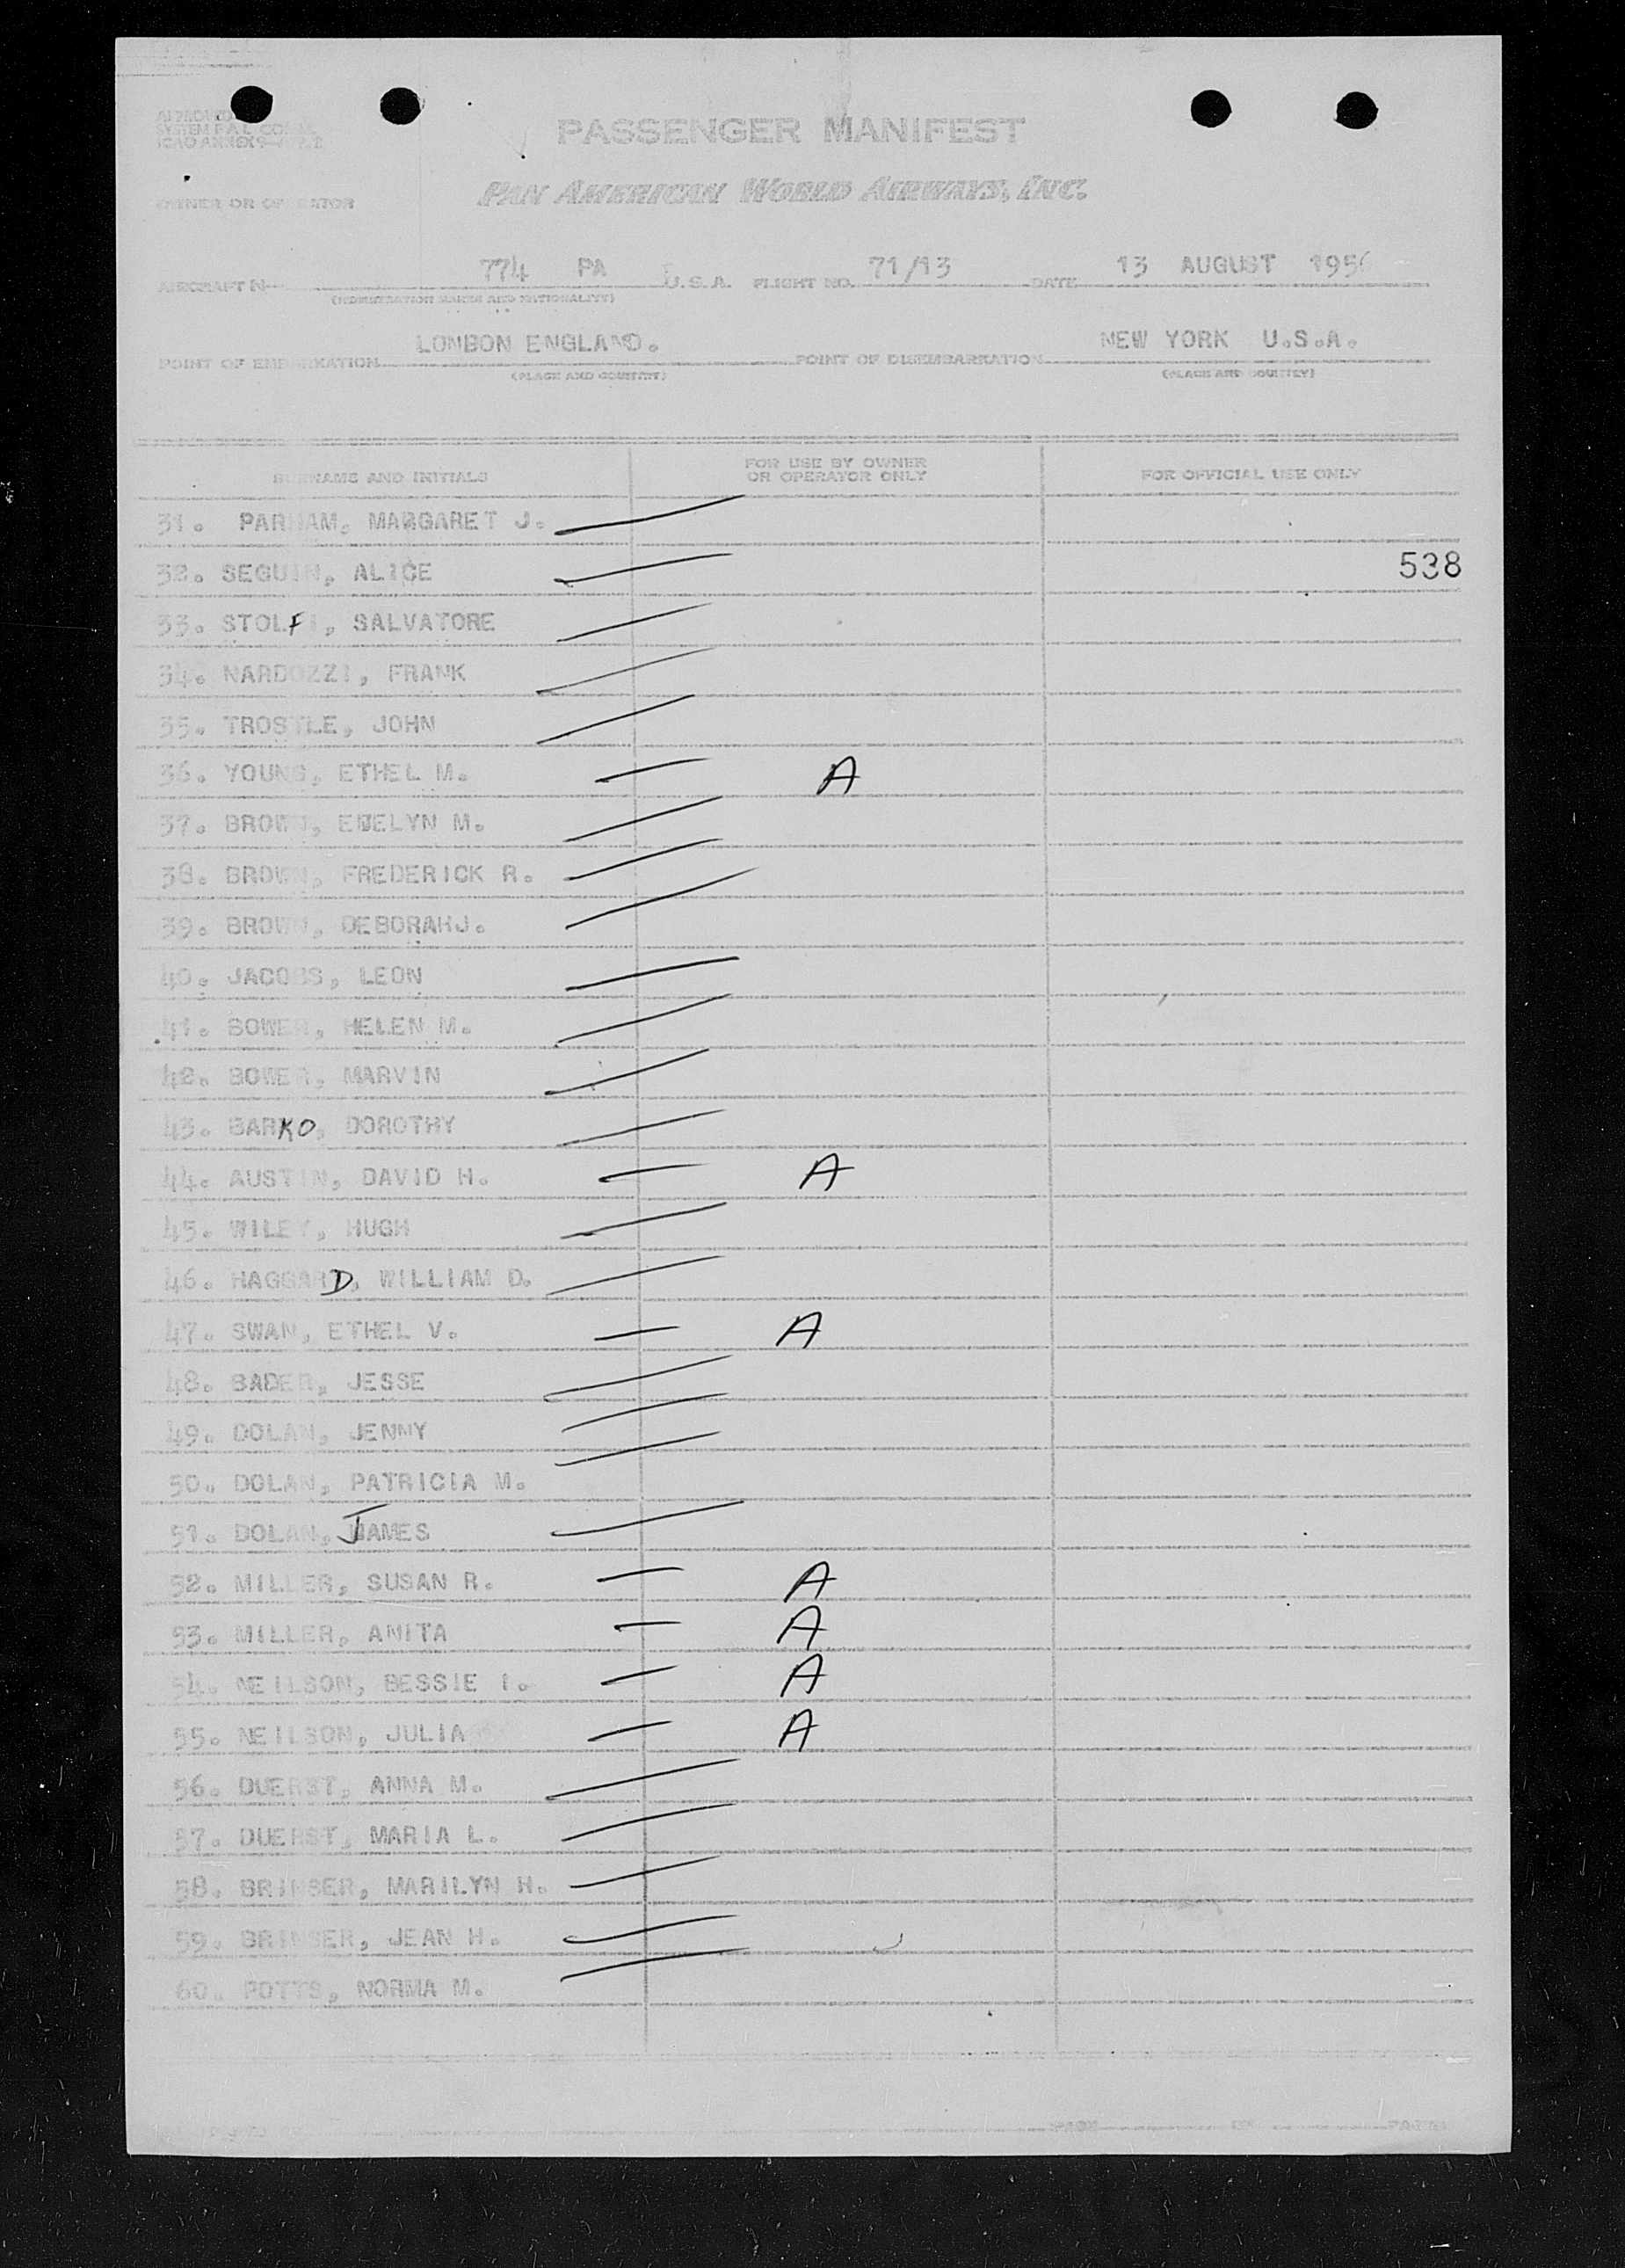 PASSENGER MANIFEST
PAN AMERICAN WORLD AIRWAYS, INC.
OWNER OR OPERATOR
AIRCRAFT N 774 PA U.S.A. FLIGHT NO. 71/13 DATE 13 AUGUST 1956
(REGISTRATION MARKS AND NATIONALITY)
POINT OF EMBARKATION LONDON ENGLAND. POINT OF DISEMBARKATION NEW YORK U.S.A.
(PLACE AND COUNTRY) (PLACE AND COUNTRY)
SURNAME AND INITIALS FOR USE BY OWNER OR OPERATOR ONLY FOR OFFICIAL USE ONLY
31. PARHAM, MARGARET J.
32. SEGUIN, ALICE 538
33. STOLFI, SALVATORE
34. NARDOZZI, FRANK
35. TROSTLE, JOHN
36. YOUNG, ETHEL M. A
37. BROWN, EWELYN M.
38. BROWN, FREDERICK R.
39. BROWN, DEBORAHJ.
40. JACOBS, LEON
41. BOWER, HELEN M.
42. BOWER, MARVIN
43. BARKO, DOROTHY
44. AUSTIN, DAVID H. A
45. WILEY, HUGH
46. HAGGARD, WILLIAM D.
47. SWAN, ETHEL V. A
48. BADER, JESSE
49. DOLAN, JENNY
50. DOLAN, PATRICIA M.
51. DOLAN, JAMES
52. MILLER, SUSAN R. A
53. MILLER, ANITA A
54. NEILSON, BESSIE I. A
55. NEILSON, JULIA A
56. DUERST, ANNA M.
57. DUERST, MARIA L.
58. BRINSER, MARILYN H.
59. BRINSER, JEAN H.
60. POTTS, NORMA M.
PAGE OF PAGES